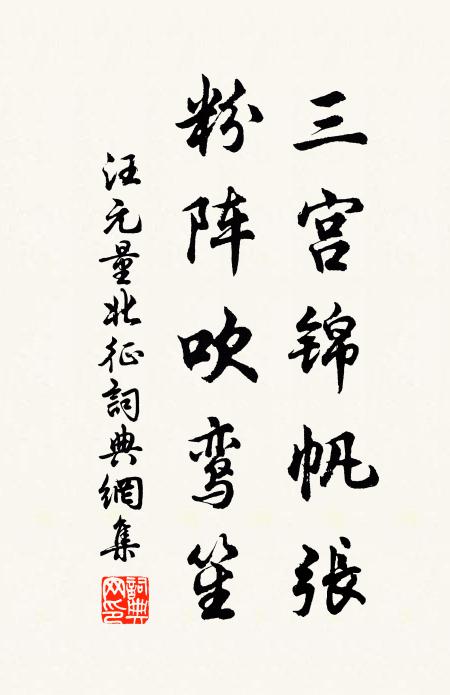 三宫锦帆張
粉阵吹鸾笙
汪元量北征詞典網集
詞典網印